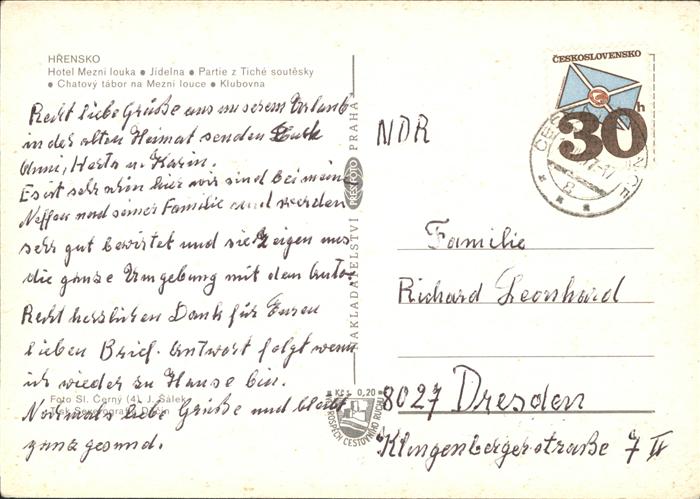 HŘENSKO
Hotel Mezní louka ● Jídelna ● Partie z Tiché soutěsky
● Chatový tábor na Mezní louce ● Klubovna
Recht liebe Grüße aus unserem Urlaub
in der alten Heimat senden Euch
Omi, Herta u. Karin.
Es ist sehr schön hier wir sind bei mein
Neffen und seiner Familie und werden
sehr gut bewirtet und sie zeigen uns
die ganze Umgebung mit dem Auto.
Recht herzlichen Dank für Euren
lieben Brief. Antwort folgt wenn
ich wieder zu Hause bin.
Nochmals liebe Grüße und bleibt
ganz gesund.
Foto Sl. Černý (4), J. Šálek
Tisk Severografia, Děčín
NAKLADATELSTVÍ PRESSFOTO PRAHA
Kčs 0,20
VE PROSPĚCH CESTOVNÍHO RUCHU
ČESKOSLOVENSKO
30 h
NDR
Familie
Richard Leonhard
8027 Dresden
Klingenbergerstraße 7 II